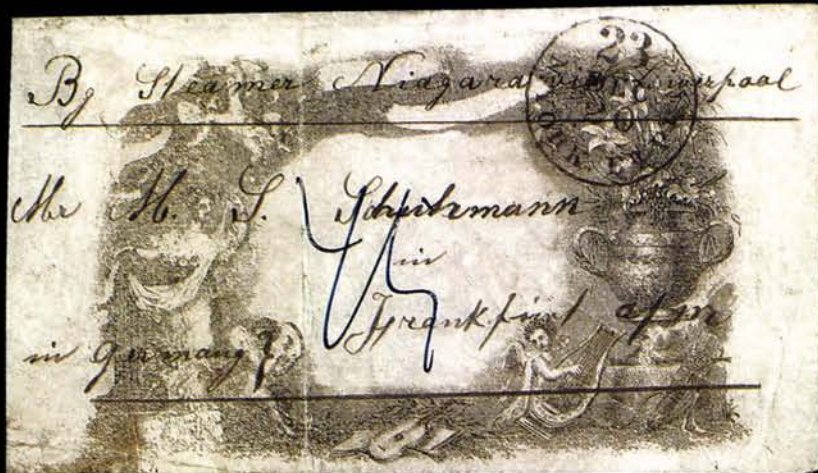 By Steamer Niagara via Liverpool
23
Mr M. S. Schutzmann
45
in
Frankfurt a/m
in Germany